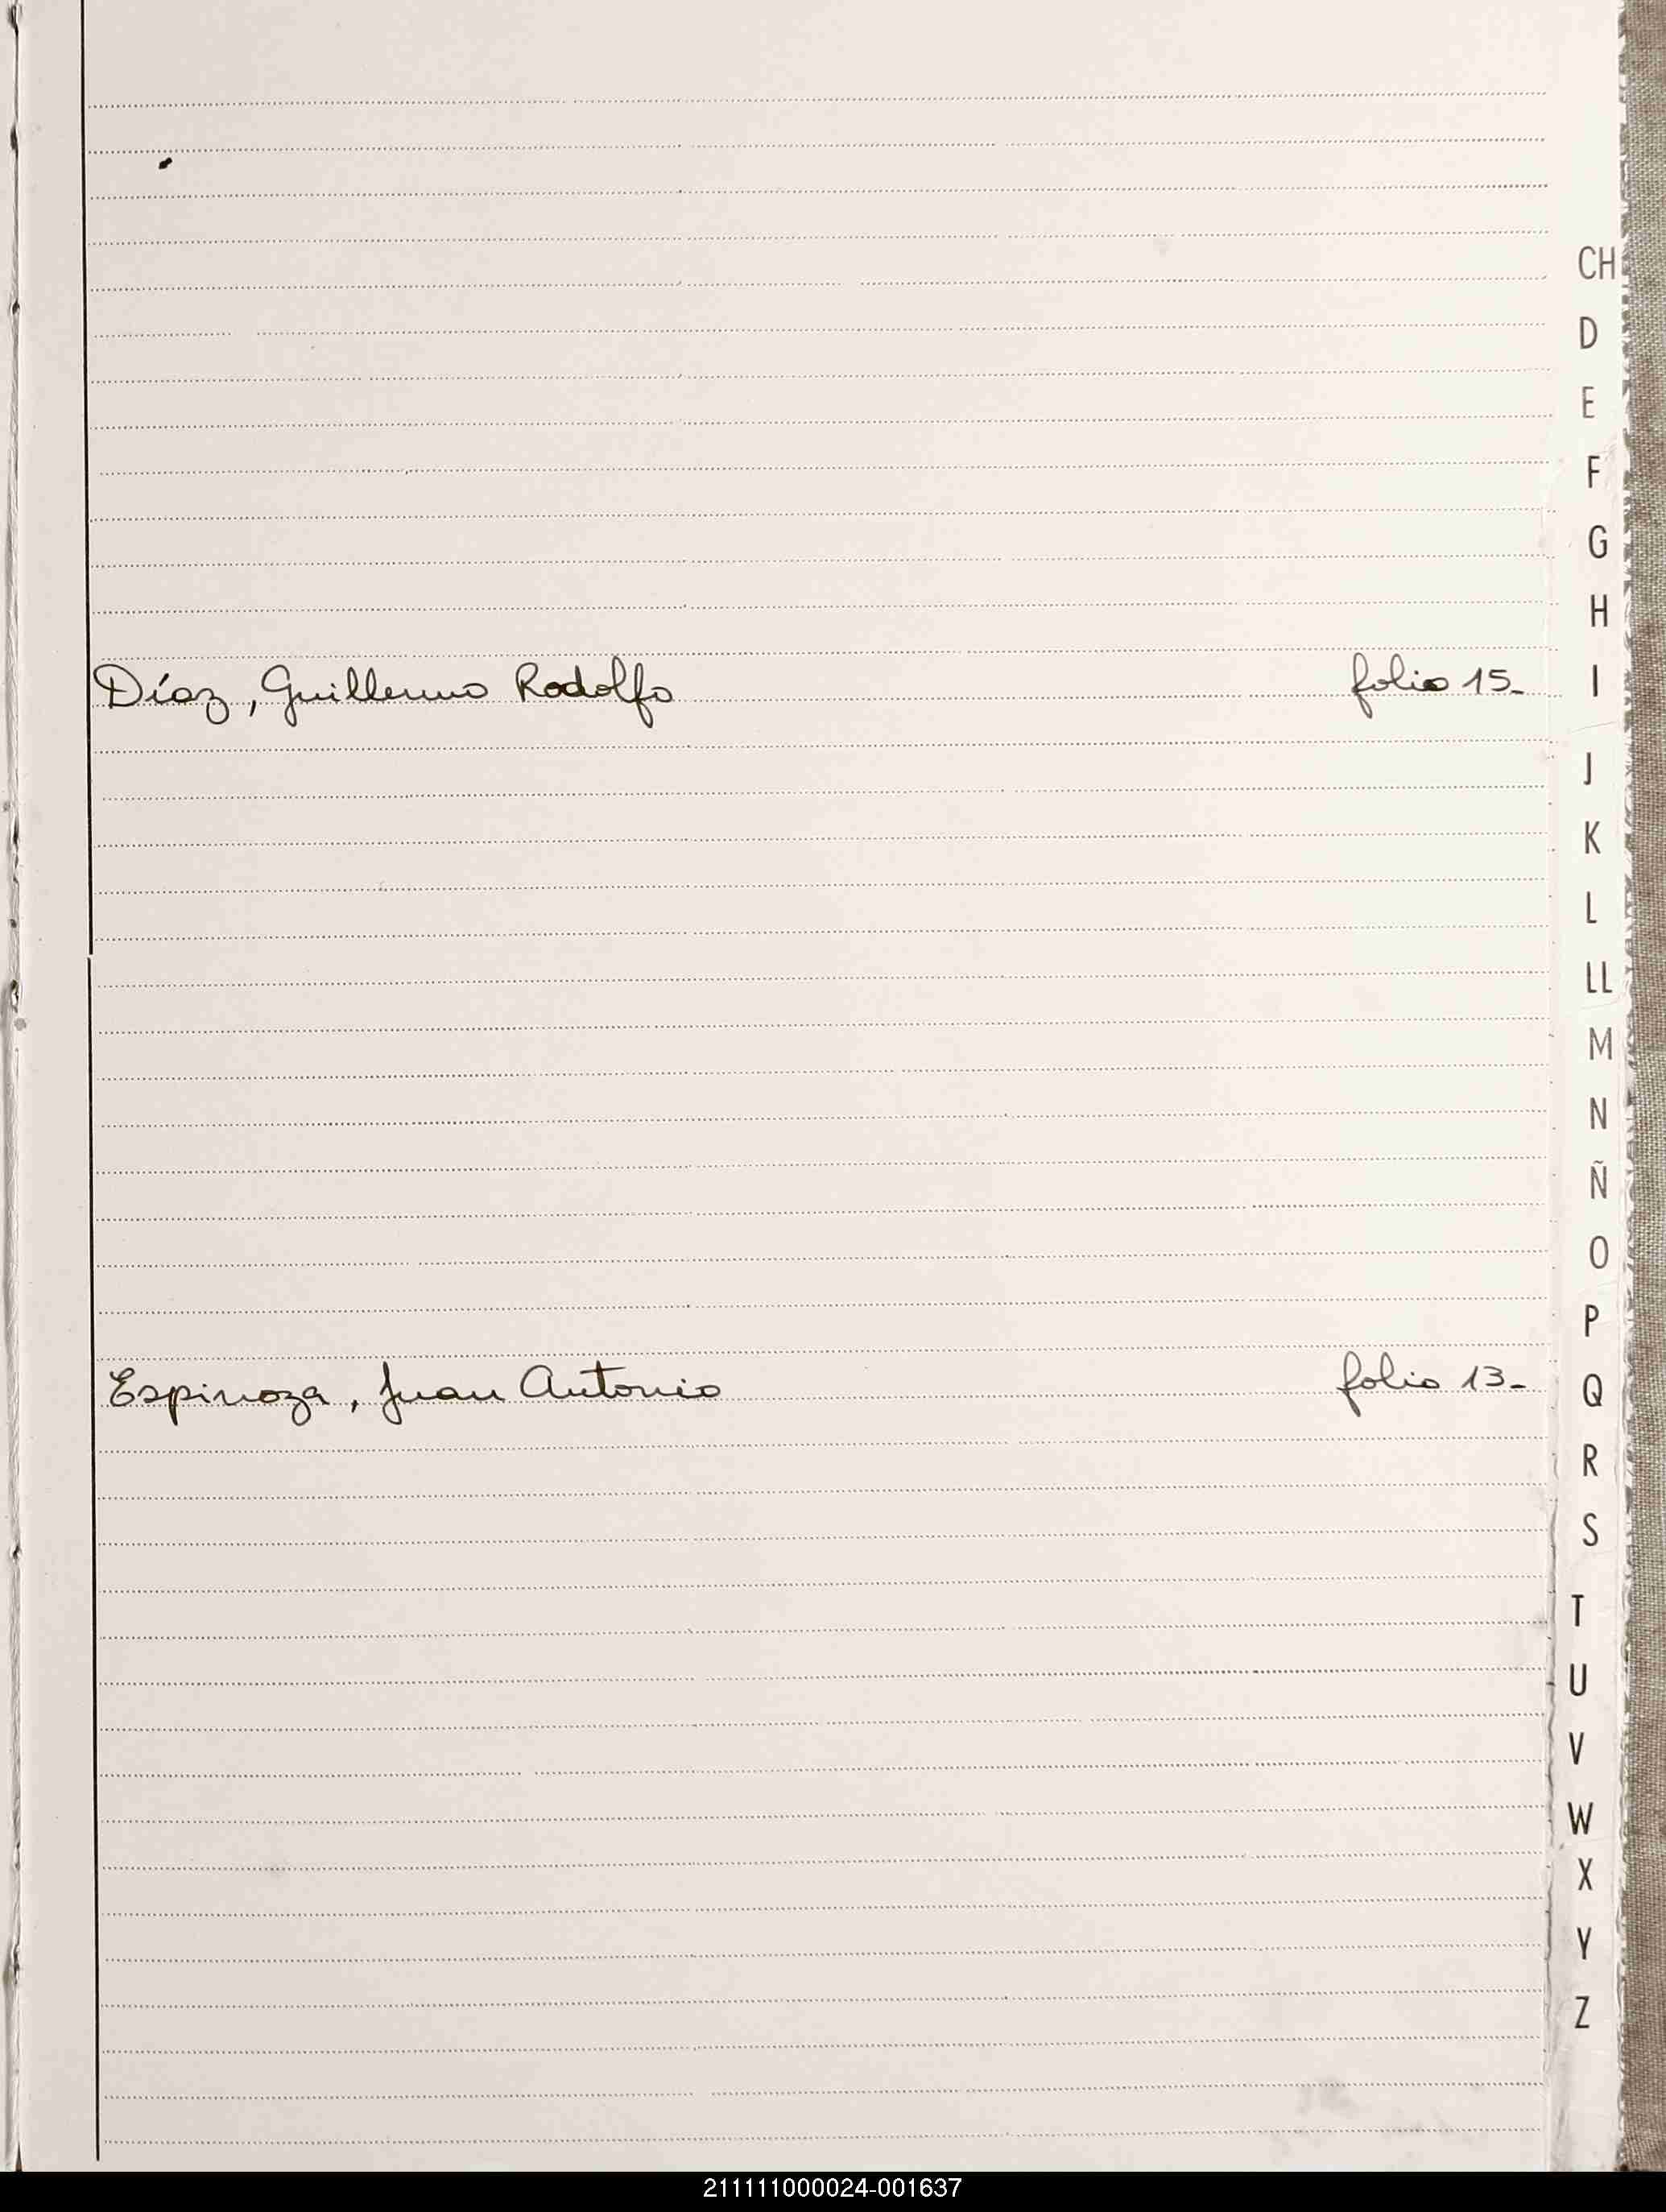 CH
D
E
F
G
H
Díaz, Guillermo Rodolfo folio 15.-
I
J
K
L
LL
M
N
Ñ
O
P
Espinoza, Juan Antonio folio 13.-
Q
R
S
T
U
V
W
X
Y
Z
211111000024-001637